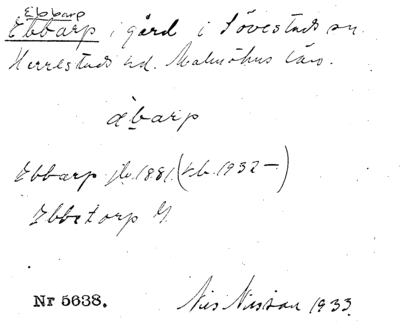 Ebbarp
Ebbarp, gård i Sövestads sn.
Herrestads hd. Malmöhus län.
äbarp
Ebbarp jb. 1881. (kb. 1932–)
Ebbetorp G.
Nr 5638.
Nils Nilsson 1933.